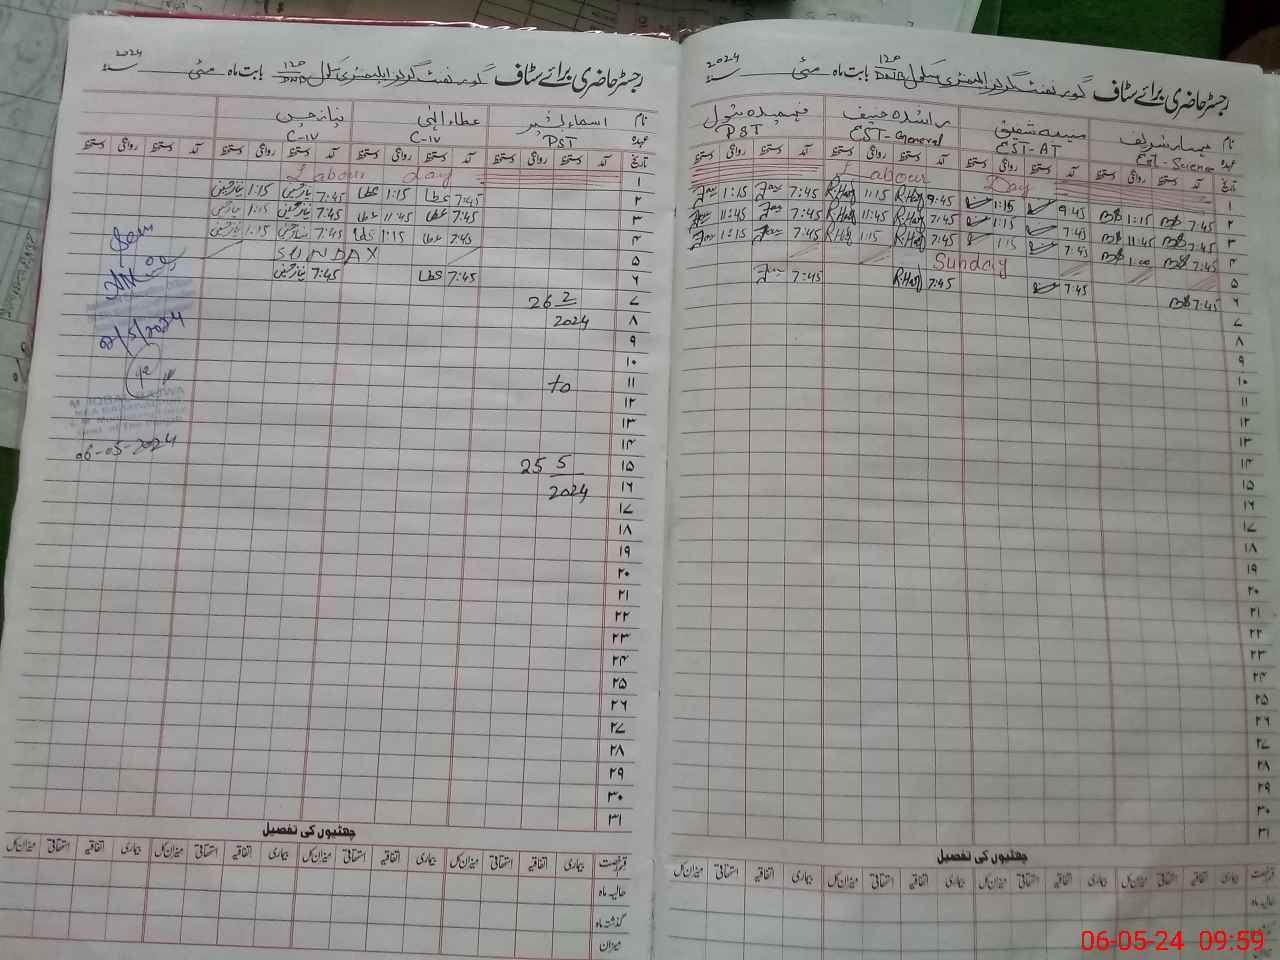 رجسٹر حاضری برائے سٹاف گورنمنٹ گرلز ایلیمنٹری سکول ۱۲۵ DNB بابت ماہ مئی 2024
نام
عہدہ
EST-Science
EST-AT
راشدہ حنیف
EST-General
فہمیدہ بتول
PST
تاریخ آمد دستخط روانگی دستخط آمد دستخط روانگی دستخط آمد دستخط روانگی دستخط آمد دستخط روانگی دستخط
۱ Labour Day
۲ 7:45 1:15 9:45 1:15 9:45 R.Haf 11:15 R.Haf 7:45 1:15
۳ 7:45 11:45 7:45 1:15 7:45 R.Haf 11:45 R.Haf 7:45 11:45
۴ 7:45 1:00 7:45 1:15 7:45 R.Haf 1:15 R.Haf 7:45 1:15
۵ Sunday
۶ 7:45 7:45 7:45 R.Haf 7:45
۷
۸
۹
۱۰
۱۱
۱۲
۱۳
۱۴
۱۵
۱۶
۱۷
۱۸
۱۹
۲۰
۲۱
۲۲
۲۳
۲۴
۲۵
۲۶
۲۷
۲۸
۲۹
۳۰
۳۱
چھٹیوں کی تفصیل
قسم رخصت بیماری اتفاقیہ استحقاقی میزان کل بیماری اتفاقیہ استحقاقی میزان کل بیماری اتفاقیہ استحقاقی میزان کل بیماری اتفاقیہ استحقاقی میزان کل
حالیہ ماہ
رجسٹر حاضری برائے سٹاف گورنمنٹ گرلز ایلیمنٹری سکول ۱۲۵ DNB بابت ماہ مئی 2024
نام اسماء بشیر عطاء الٰہی
عہدہ PST C-IV C-IV
تاریخ آمد دستخط روانگی دستخط آمد دستخط روانگی دستخط آمد دستخط روانگی دستخط آمد دستخط روانگی دستخط
۱ Labour day
۲ 7:45 عطا 1:15 عطا 7:45 1:15
۳ 7:45 عطا 11:45 عطا 7:45 1:15
۴ 7:45 عطا 1:15 عطا 7:45 1:15
۵ SUNDAY
۶ 7:45 عطا 7:45
۷ 26 2
۸ 2024
۹
۱۰
۱۱ to
۱۲
۱۳
۱۴
۱۵ 25 5
۱۶ 2024
۱۷
۱۸
۱۹
۲۰
۲۱
۲۲
۲۳
۲۴
۲۵
۲۶
۲۷
۲۸
۲۹
۳۰
۳۱
02/5/2024
06-05-2024
چھٹیوں کی تفصیل
قسم رخصت بیماری اتفاقیہ استحقاقی میزان کل بیماری اتفاقیہ استحقاقی میزان کل بیماری اتفاقیہ استحقاقی میزان کل بیماری اتفاقیہ استحقاقی میزان کل
حالیہ ماہ
گذشتہ ماہ
میزان
06-05-24 09:59